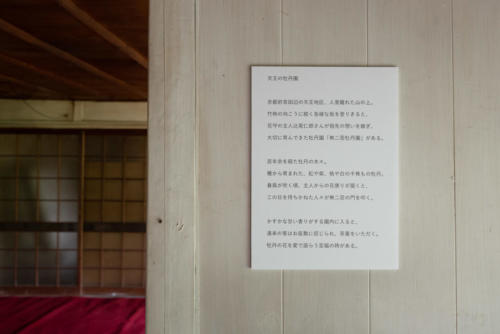 天王の牡丹園
京都府京田辺の天王地区、人里離れた山の上。
竹林の向こうに続く急峻な坂を登りきると、
花守の主人辻晃仁郎さんが祖先の想いを継ぎ、
大切に育んできた牡丹園「無二荘牡丹園」がある。
百年余を経た牡丹の木々。
種から育まれた、紅や紫、桃や白の千株もの牡丹。
春風が吹く頃、主人からの花便りが届くと、
この日を待ちかねた人々が無二荘の門を叩く。
かすかな甘い香りがする園内に入ると、
遠来の客はお座敷に招じられ、茶菓をいただく。
牡丹の花を愛で語らう至福の時がある。